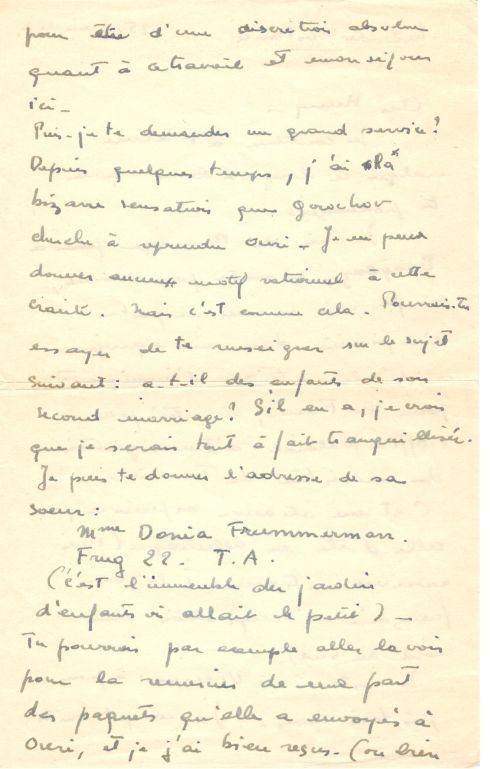 pour être d'une discrétion absolue
quant à ce travail et mon séjour
ici -
Puis-je te demander un grand service?
Depuis quelques temps, j'ai la
bizarre sensation que Gorochov
cherche à reprendre Ouri - Je ne peux
donner aucun motif rationnel à cette
crainte. Mais c'est comme cela. Pourrais-tu
essayer de te renseigner sur le sujet
suivant: a-t-il des enfants de son
second marriage? S'il en a, je crois
que je serais tout à fait tranquillisée.
Je puis te donner l'adresse de sa
soeur:
Mme Donia Frummerman.
Frug 22. T.A.
(c'est l'immeuble du jardin
d'enfants où allait le petit) -
Tu pourrais par exemple aller la voir
pour la remercier de ma part
des paquets qu'elle a envoyés à
Ouri, et que j'ai bien reçus. (ou bien